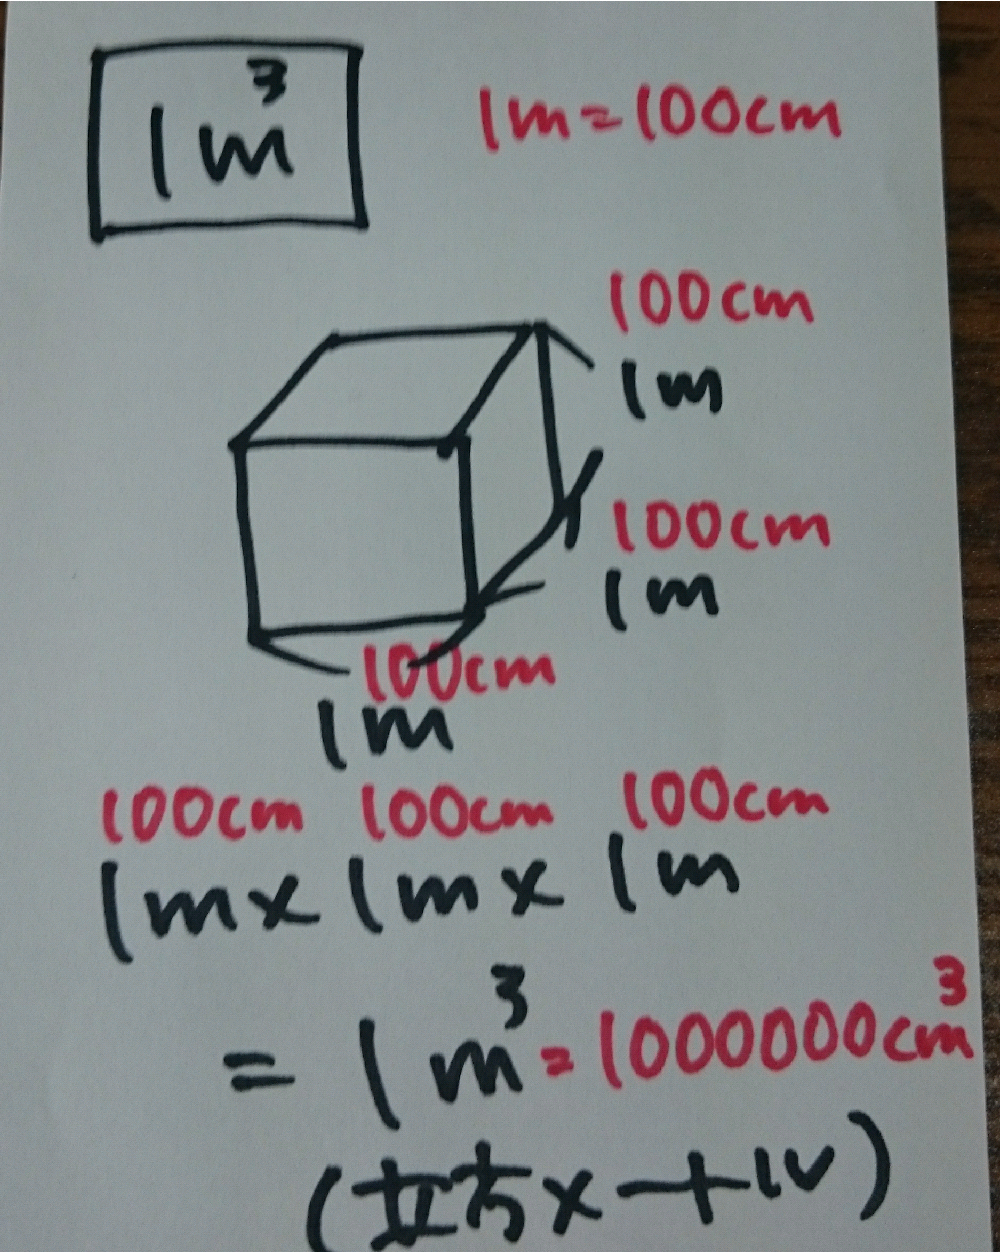 1m³ 1m=100cm
100cm
1m
100cm
1m
100cm
1m
100cm 100cm 100cm
1m× 1m× 1m
= 1m³=1000000cm³
(立方メートル)